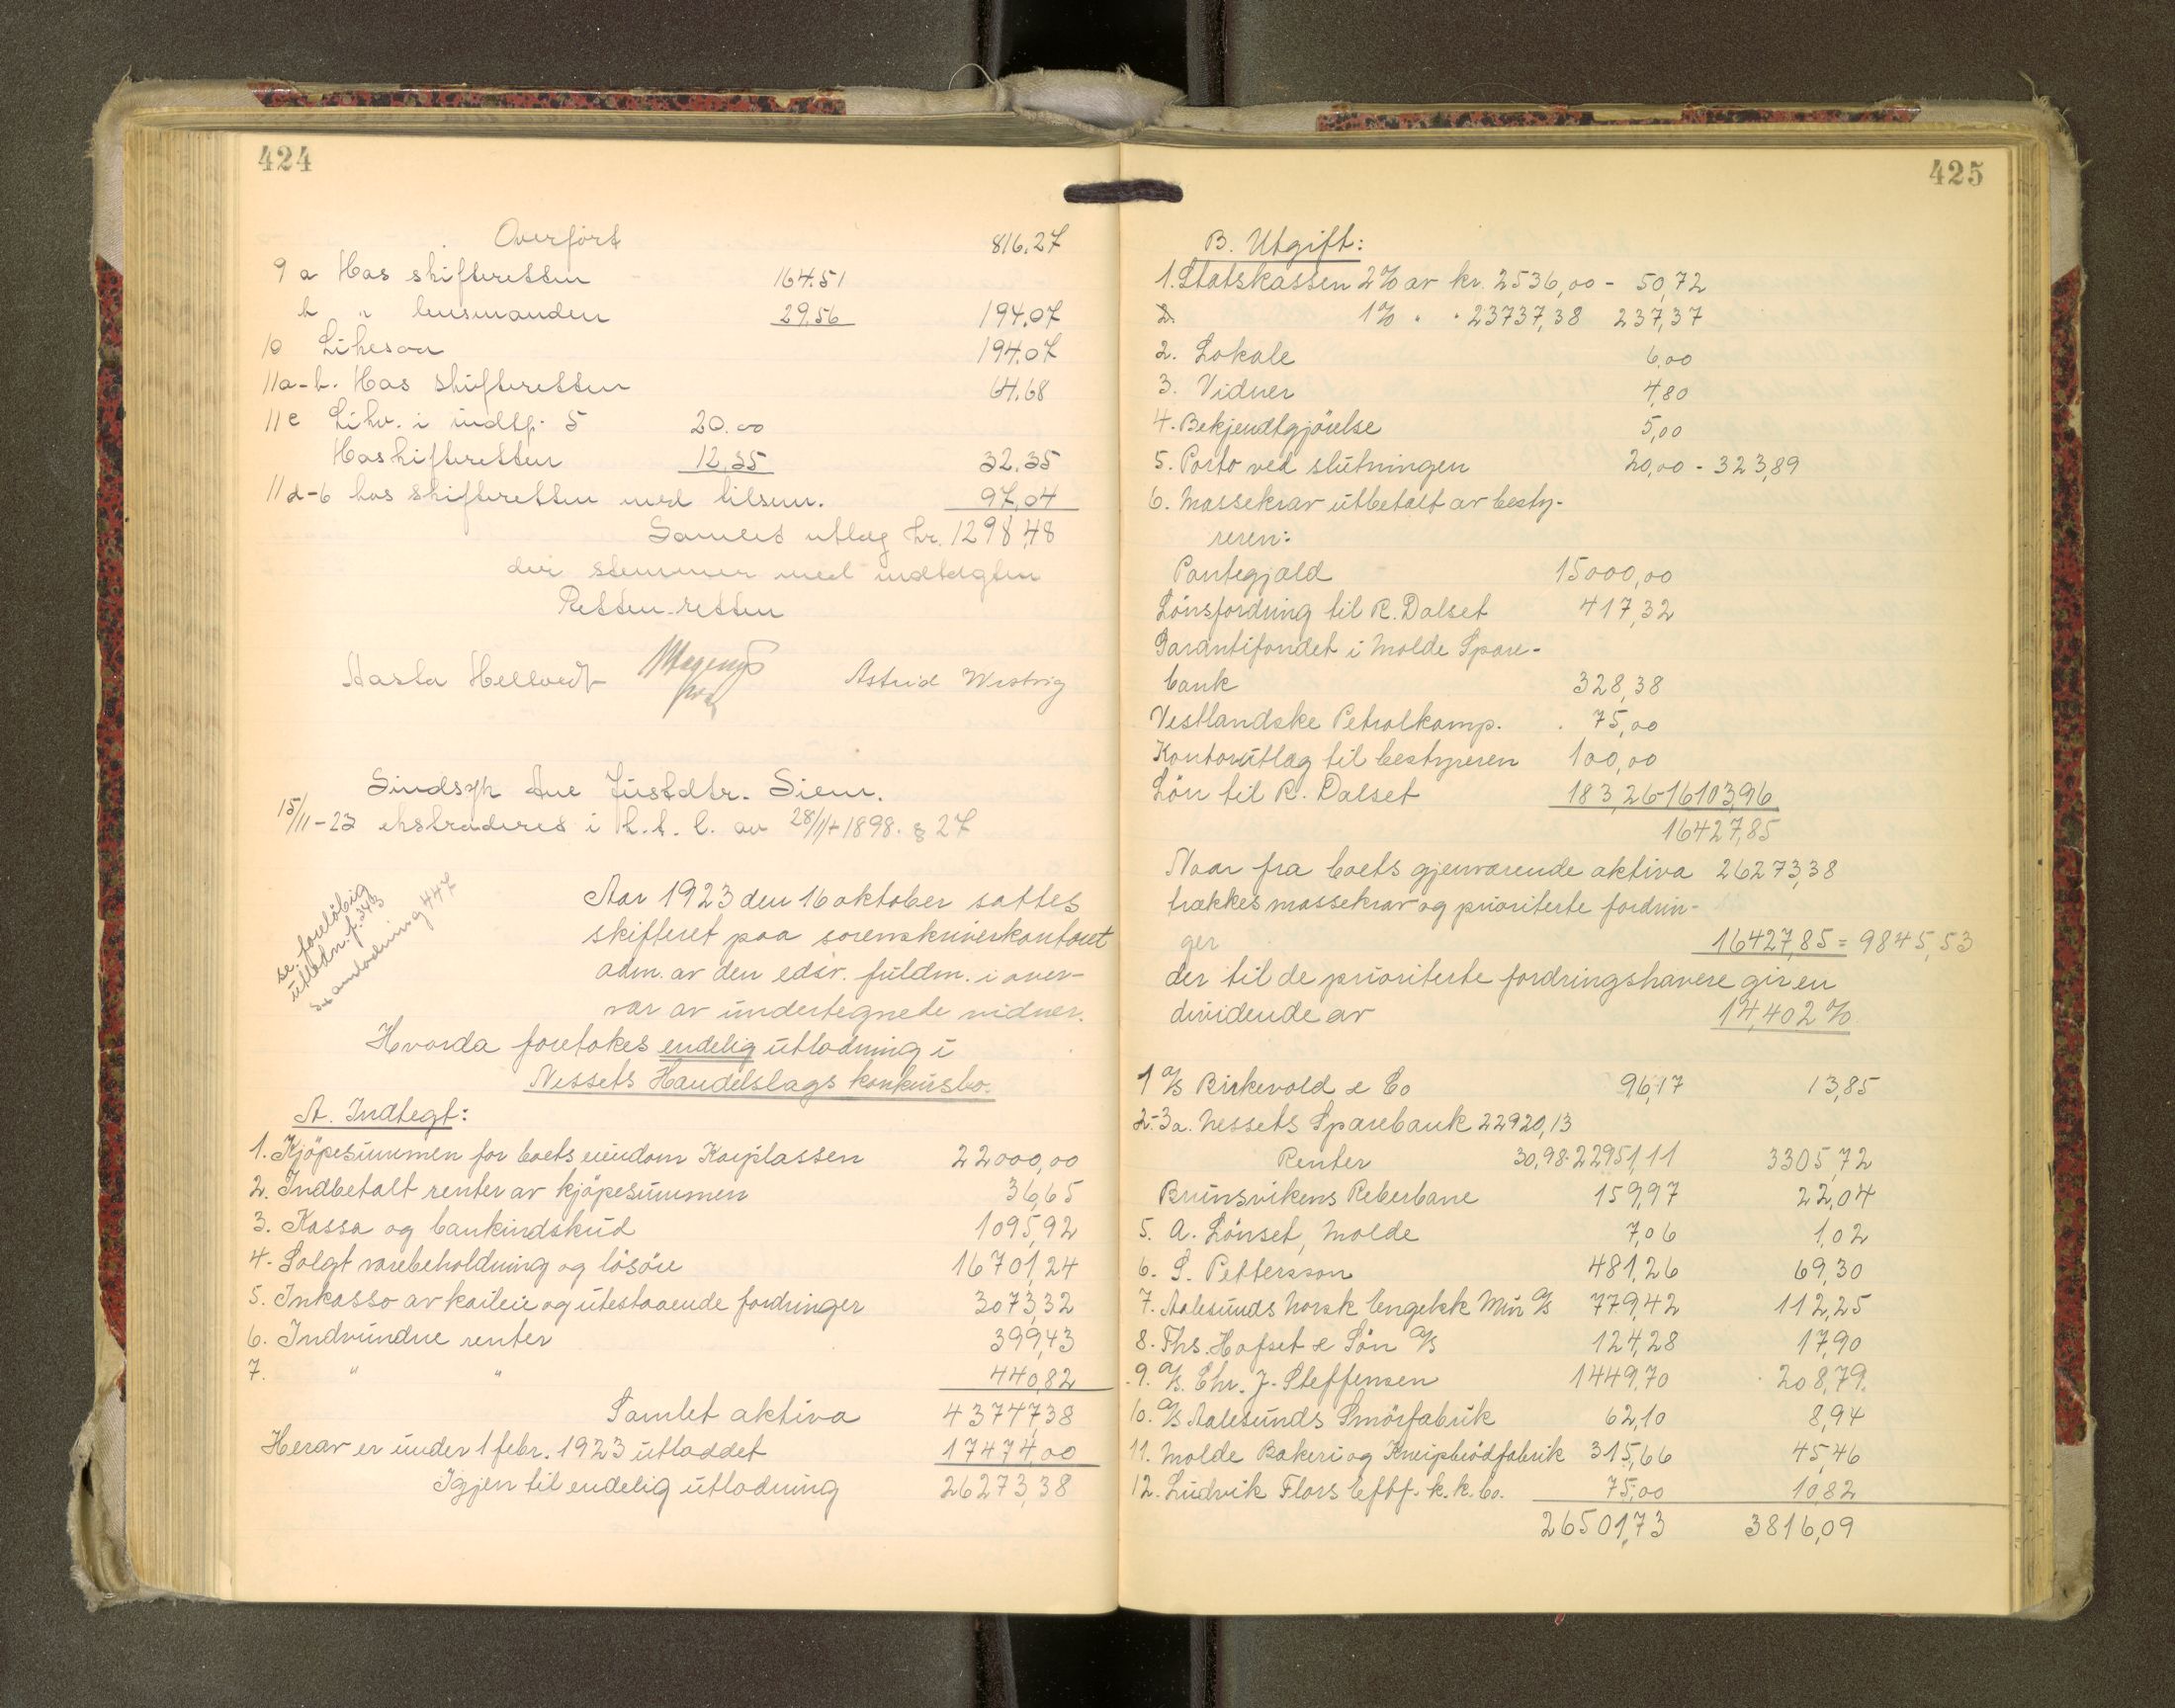 424
Overført 816.27
9 a Hos skifteretten 164.51
b " lensmanden 29.56 194.07
10 Likesaa 194.07
11a-b. Hos skifteretten 64.68
11c Likv. i indtp. 5 20.00
Hos skifteretten 12.35 32.35
11d-6 hos skifteretten med tilsum. 97,04
Samlet utlæg kr. 1298,48
der stemmer med indtægten
Retten-retten
Aasta Hellvedt Astrid Westvig
Sindsyk Ane Justdtr. Siem.
15/11-23 ekstraderes i h.t. l. av 28/11 1898. § 27
se foreløbig
utlodn. f. 343
se omlodning 447
Aar 1923 den 16 oktober sattes
skifteret paa sorenskriverkontoret
adm. av den edsv. fuldm. i over-
vær av undertegnede vidner.
Hvorda foretokes endelig utlodning i
Nessets Handelslags konkursbo.
A. Indtegt:
1. Kjöpesummen for boets eiendom Kaiplassen 22000,00
2. Indbetalt renter av kjöpesummen 36,65
3. Kassa og bankindskud 1095,92
4. Solgt varebeholdning og lösöre 16701,24
5. Inkasso av kaileie og utestaaende fordringer 3073,32
6. Indvundne renter 399,43
7. " " 440,82
Samlet aktiva 43747,38
Herav er under 1 febr. 1923 utloddet 17474,00
Igjen til endelig utlodning 26273,38
425
B. Utgift:
1. Statskassen 2% av kr. 2536,00 - 50,72
2. 1% " " 23737,38 237,37
2. Lokale 6.00
3. Vidner 4,80
4. Bekjendtgjörelse 5,00
5. Porto ved slutningen 20,00 - 323,89
6. Massekrav utbetalt av besty-
reren:
Pantegjæld 15000,00
Lönsfordring til R. Dalset 417,32
Garantifondet i Molde Spare-
bank 328,38
Vestlandske Petrolkomp. 75,00
Kontorutlæg til bestyreren 100,00
Lön til R. Dalset 183,26 - 16103,96
16427,85
Naar fra boets gjenværende aktiva 26273,38
trækkes massekrav og prioriterte fordrin-
ger 16427,85 = 9845,53
der til de prioriterte fordringshavere gir en
dividende av 14,402 %
1 A/S Birkevold & Co 96,17 13,85
2-3a. Nessets Sparebank 22920,13
Renter 30,98 - 22951,11 3305,72
Brunsvikens Reberbane 159,97 22,04
5. A. Lönset, Molde 7,06 1,02
6. S. Pettersson 481,26 69,30
7. Aalesunds Norsk Engelsk Min A/S 779,42 112,25
8. Ths. Hofset & Sön A/S 124,28 17,90
9. A/S. Chr. J. Steffensen 1449,70 208,79
10. A/S Aalesunds Smörfabrik 62,10 8,94
11. Molde Bakeri og Kneipbrödfabrik 315,66 45,46
12. Ludvik Flors Eftf. k.k. bo. 75,00 10,82
26501,73 3816,09